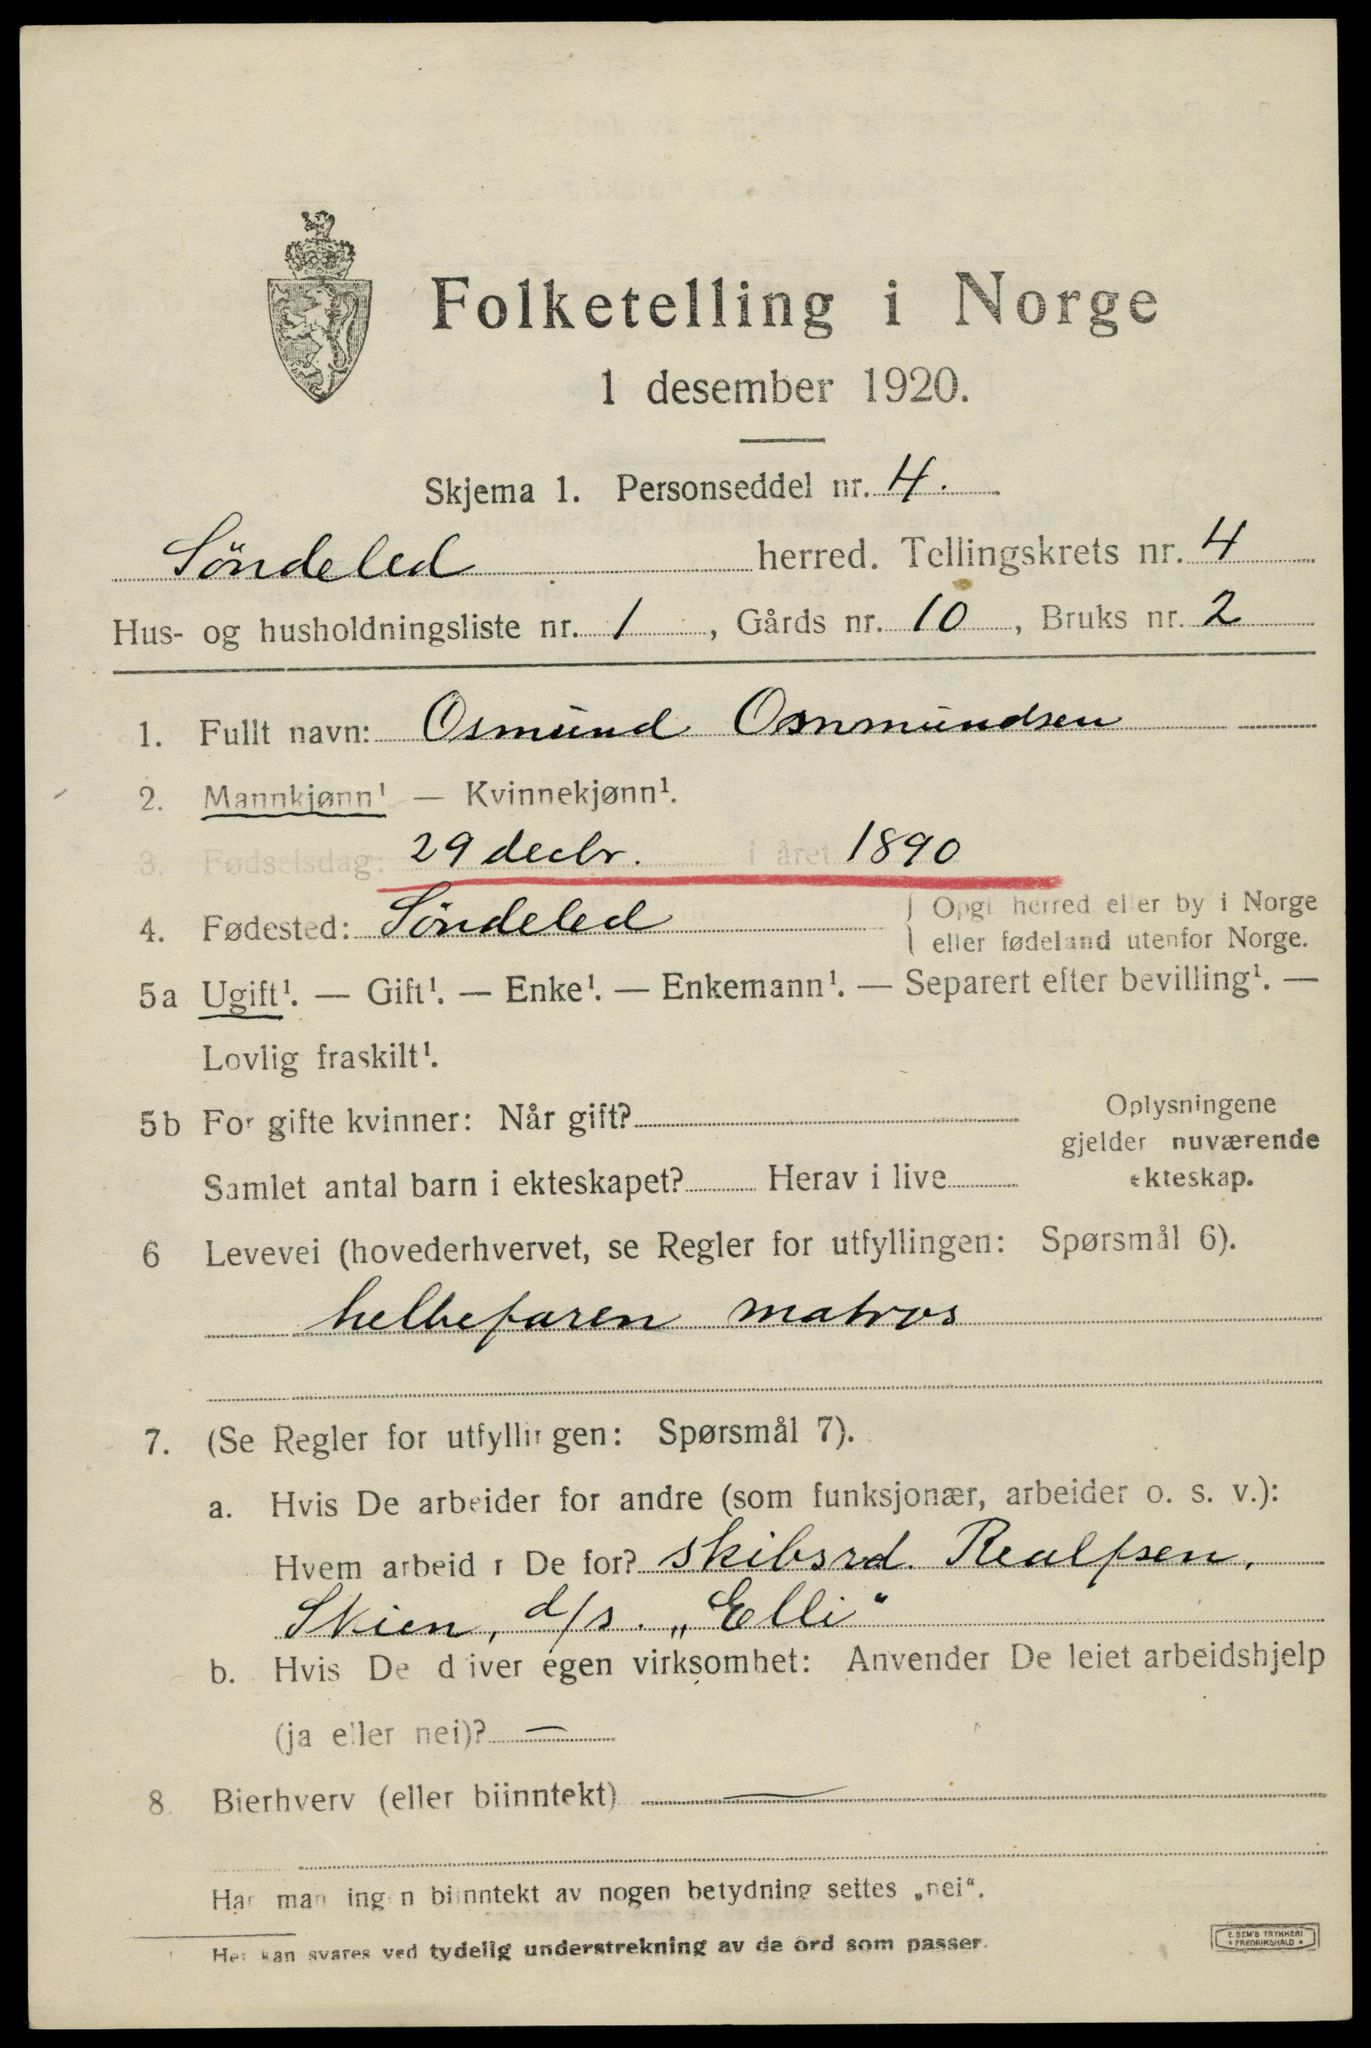 Folketelling i Norge
1 desember 1920.
Skjema 1. Personseddel nr. 4.
Söndeled herred. Tellingskrets nr. 4
Hus- og husholdningsliste nr. 1, Gårds nr. 10, Bruks nr. 2
1. Fullt navn: Osmund Osmundsen
2. Mannkjønn¹ — Kvinnekjønn¹.
3. Fødselsdag: 29 decbr. i året 1890
4. Fødested: Söndeled { Opgi herred eller by i Norge
eller fødeland utenfor Norge.
5a Ugift¹. — Gift¹. — Enke¹. — Enkemann¹. — Separert efter bevilling¹. —
Lovlig fraskilt¹.
5b For gifte kvinner: Når gift? Oplysningene
gjelder nuværende
Samlet antal barn i ekteskapet? Herav i live ekteskap.
6 Levevei (hovederhvervet, se Regler for utfyllingen: Spørsmål 6).
helbefaren matros
7. (Se Regler for utfyllingen: Spørsmål 7).
a. Hvis De arbeider for andre (som funksjonær, arbeider o. s. v.):
Hvem arbeider De for? skibsrd. Realfsen,
Skien, d/s. „Elli“
b. Hvis De driver egen virksomhet: Anvender De leiet arbeidshjelp
(ja eller nei)? —
8. Bierhverv (eller biinntekt) —
Har man ingen biinntekt av nogen betydning settes „nei“.
¹ Her kan svares ved tydelig understrekning av de ord som passer.
E. SEM'S TRYKKERI
* FREDRIKSHALD *